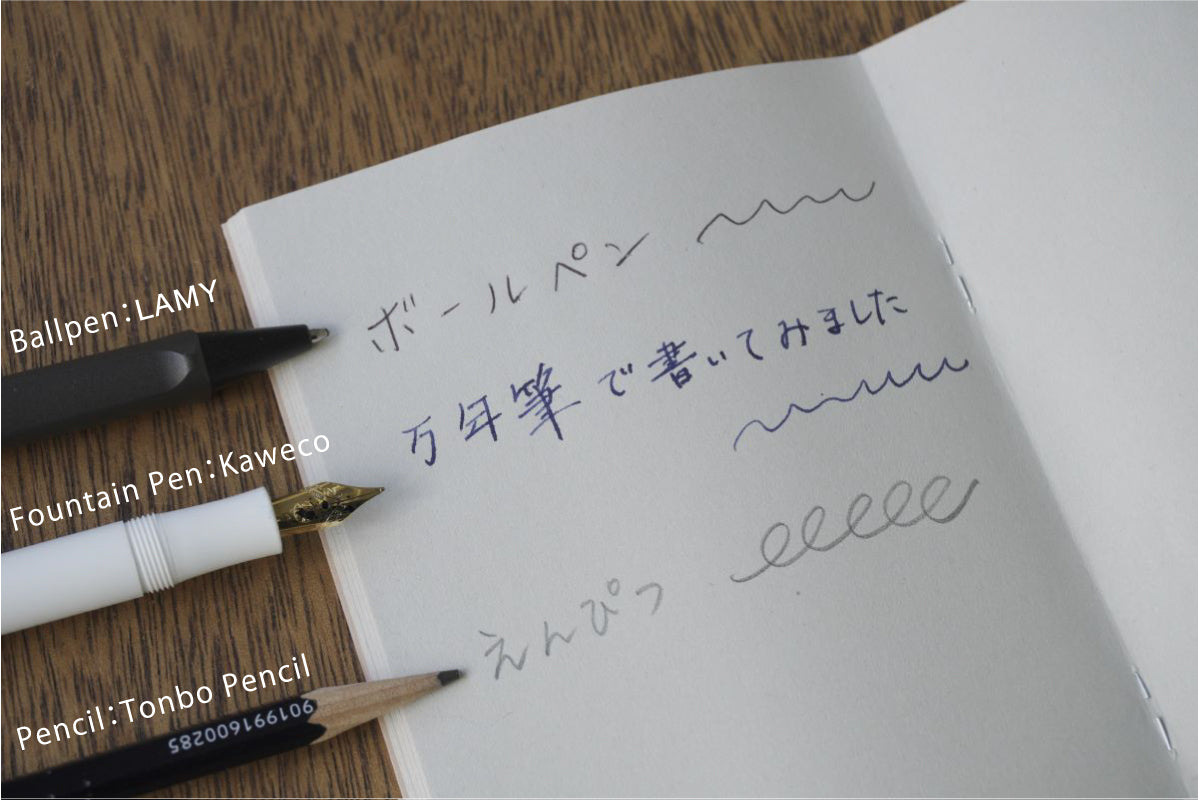 ボールペン
Ballpen:LAMY
万年筆で書いてみました
Fountain Pen:Kaweco
えんぴつ
Pencil:Tonbo Pencil
901991600285